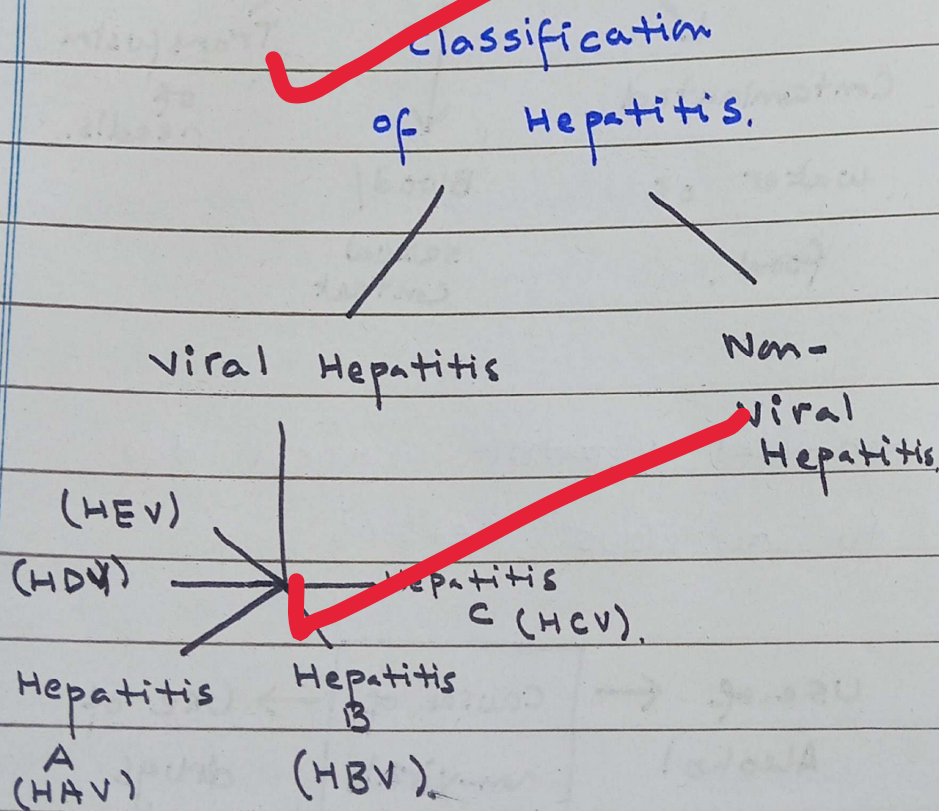 Classification
of Hepatitis.
Viral Hepatitis
Non-
Viral
Hepatitis
(HEV)
(HDV)
Hepatitis
C (HCV).
Hepatitis
A
(HAV)
Hepatitis
B
(HBV).